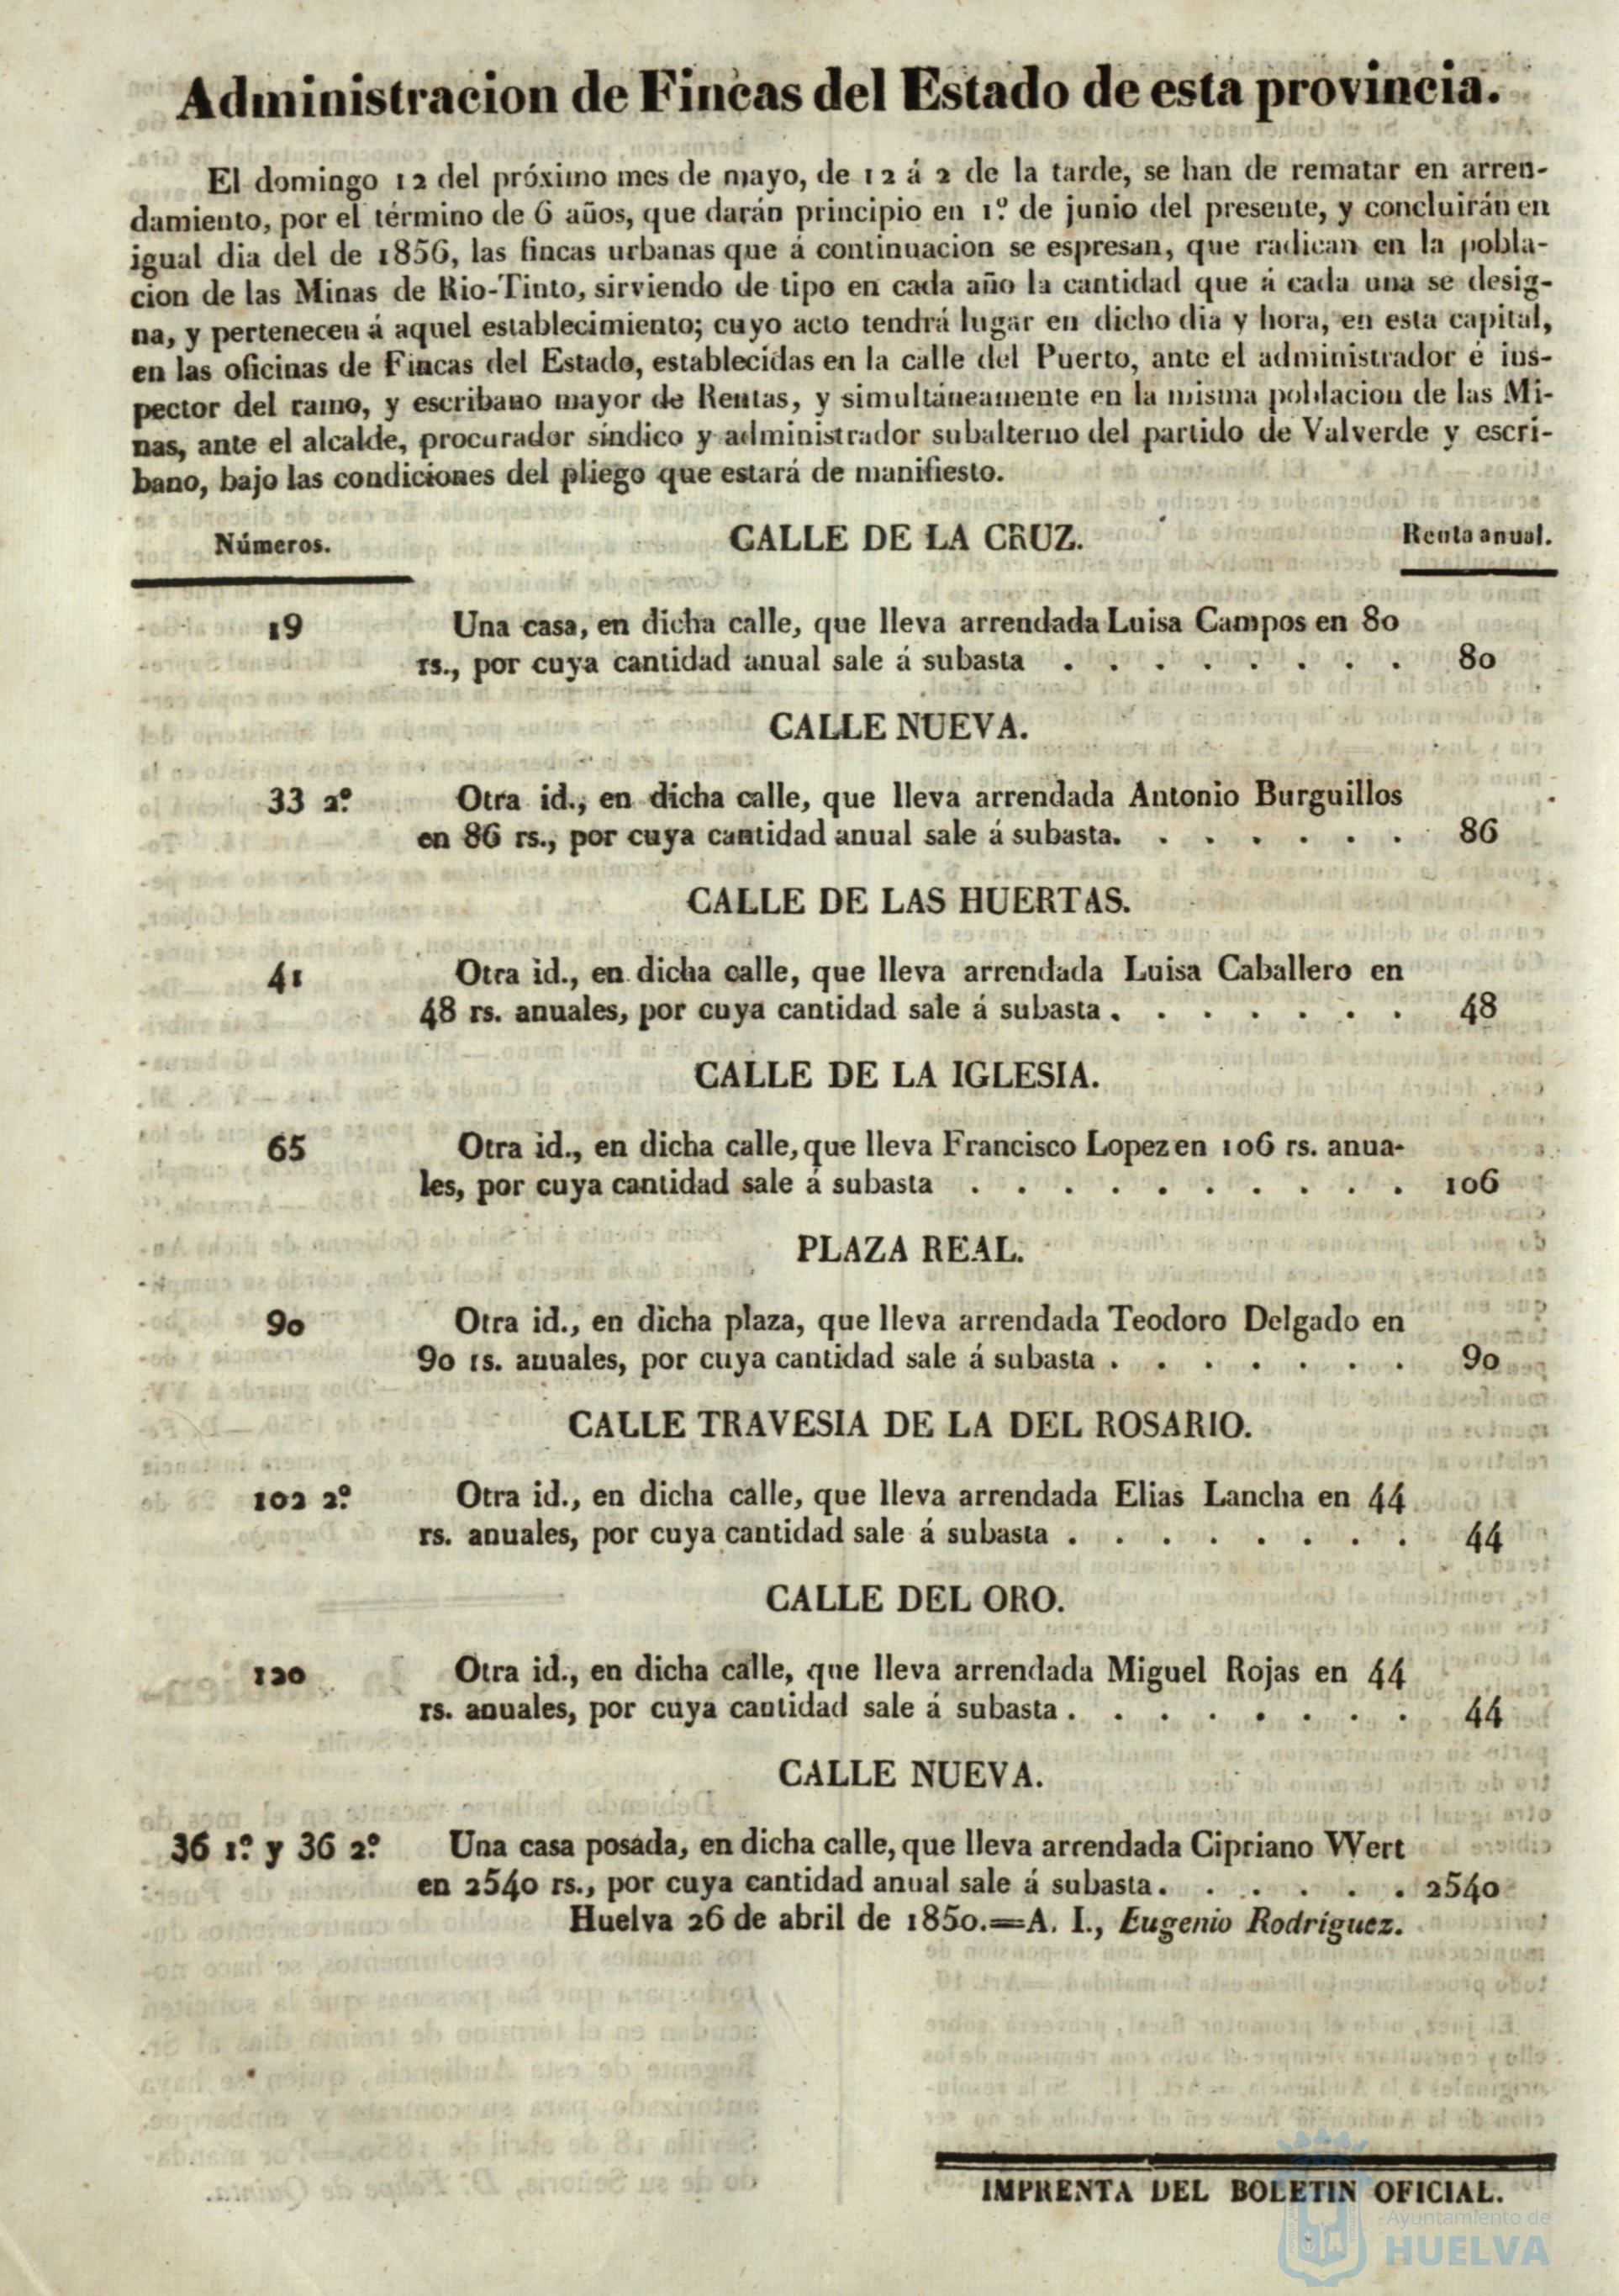 Administracion de Fincas del Estado de esta provincia.
El domingo 12 del próximo mes de mayo, de 12 á 2 de la tarde, se han de rematar en arren-
damiento, por el término de 6 años, que darán principio en 1.º de junio del presente, y concluirán en
igual dia del de 1856, las fincas urbanas que á continuacion se espresan, que radican en la pobla-
cion de las Minas de Rio-Tinto, sirviendo de tipo en cada año la cantidad que á cada una se desig-
na, y pertenecen á aquel establecimiento; cuyo acto tendrá lugar en dicho dia y hora, en esta capital,
en las oficinas de Fincas del Estado, establecidas en la calle del Puerto, ante el administrador é ins-
pector del ramo, y escribano mayor de Rentas, y simultáneamente en la misma poblacion de las Mi-
nas, ante el alcalde, procurador síndico y administrador subalterno del partido de Valverde y escri-
bano, bajo las condiciones del pliego que estará de manifiesto.
Números. CALLE DE LA CRUZ. Renta anual.
19 Una casa, en dicha calle, que lleva arrendada Luisa Campos en 80
rs., por cuya cantidad anual sale á subasta . . . . . . . . 80
CALLE NUEVA.
33 2.º Otra id., en dicha calle, que lleva arrendada Antonio Burguillos
en 86 rs., por cuya cantidad anual sale á subasta. . . . . . . 86
CALLE DE LAS HUERTAS.
41 Otra id., en dicha calle, que lleva arrendada Luisa Caballero en
48 rs. anuales, por cuya cantidad sale á subasta . . . . . . . 48
CALLE DE LA IGLESIA.
65 Otra id., en dicha calle, que lleva Francisco Lopez en 106 rs. anua-
les, por cuya cantidad sale á subasta . . . . . . . . . . 106
PLAZA REAL.
90 Otra id., en dicha plaza, que lleva arrendada Teodoro Delgado en
90 rs. anuales, por cuya cantidad sale á subasta . . . . . . . 90
CALLE TRAVESIA DE LA DEL ROSARIO.
102 2.º Otra id., en dicha calle, que lleva arrendada Elias Lancha en 44
rs. anuales, por cuya cantidad sale á subasta . . . . . . . . 44
CALLE DEL ORO.
120 Otra id., en dicha calle, que lleva arrendada Miguel Rojas en 44
rs. anuales, por cuya cantidad sale á subasta . . . . . . . . 44
CALLE NUEVA.
36 1.º y 36 2.º Una casa posada, en dicha calle, que lleva arrendada Cipriano Wert
en 2540 rs., por cuya cantidad anual sale á subasta. . . . . . . 2540
Huelva 26 de abril de 1850.=A. I., Eugenio Rodriguez.
IMPRENTA DEL BOLETIN OFICIAL.
Ayuntamiento de
HUELVA